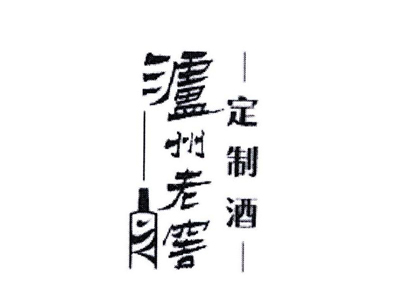 泸州老窖
定制酒